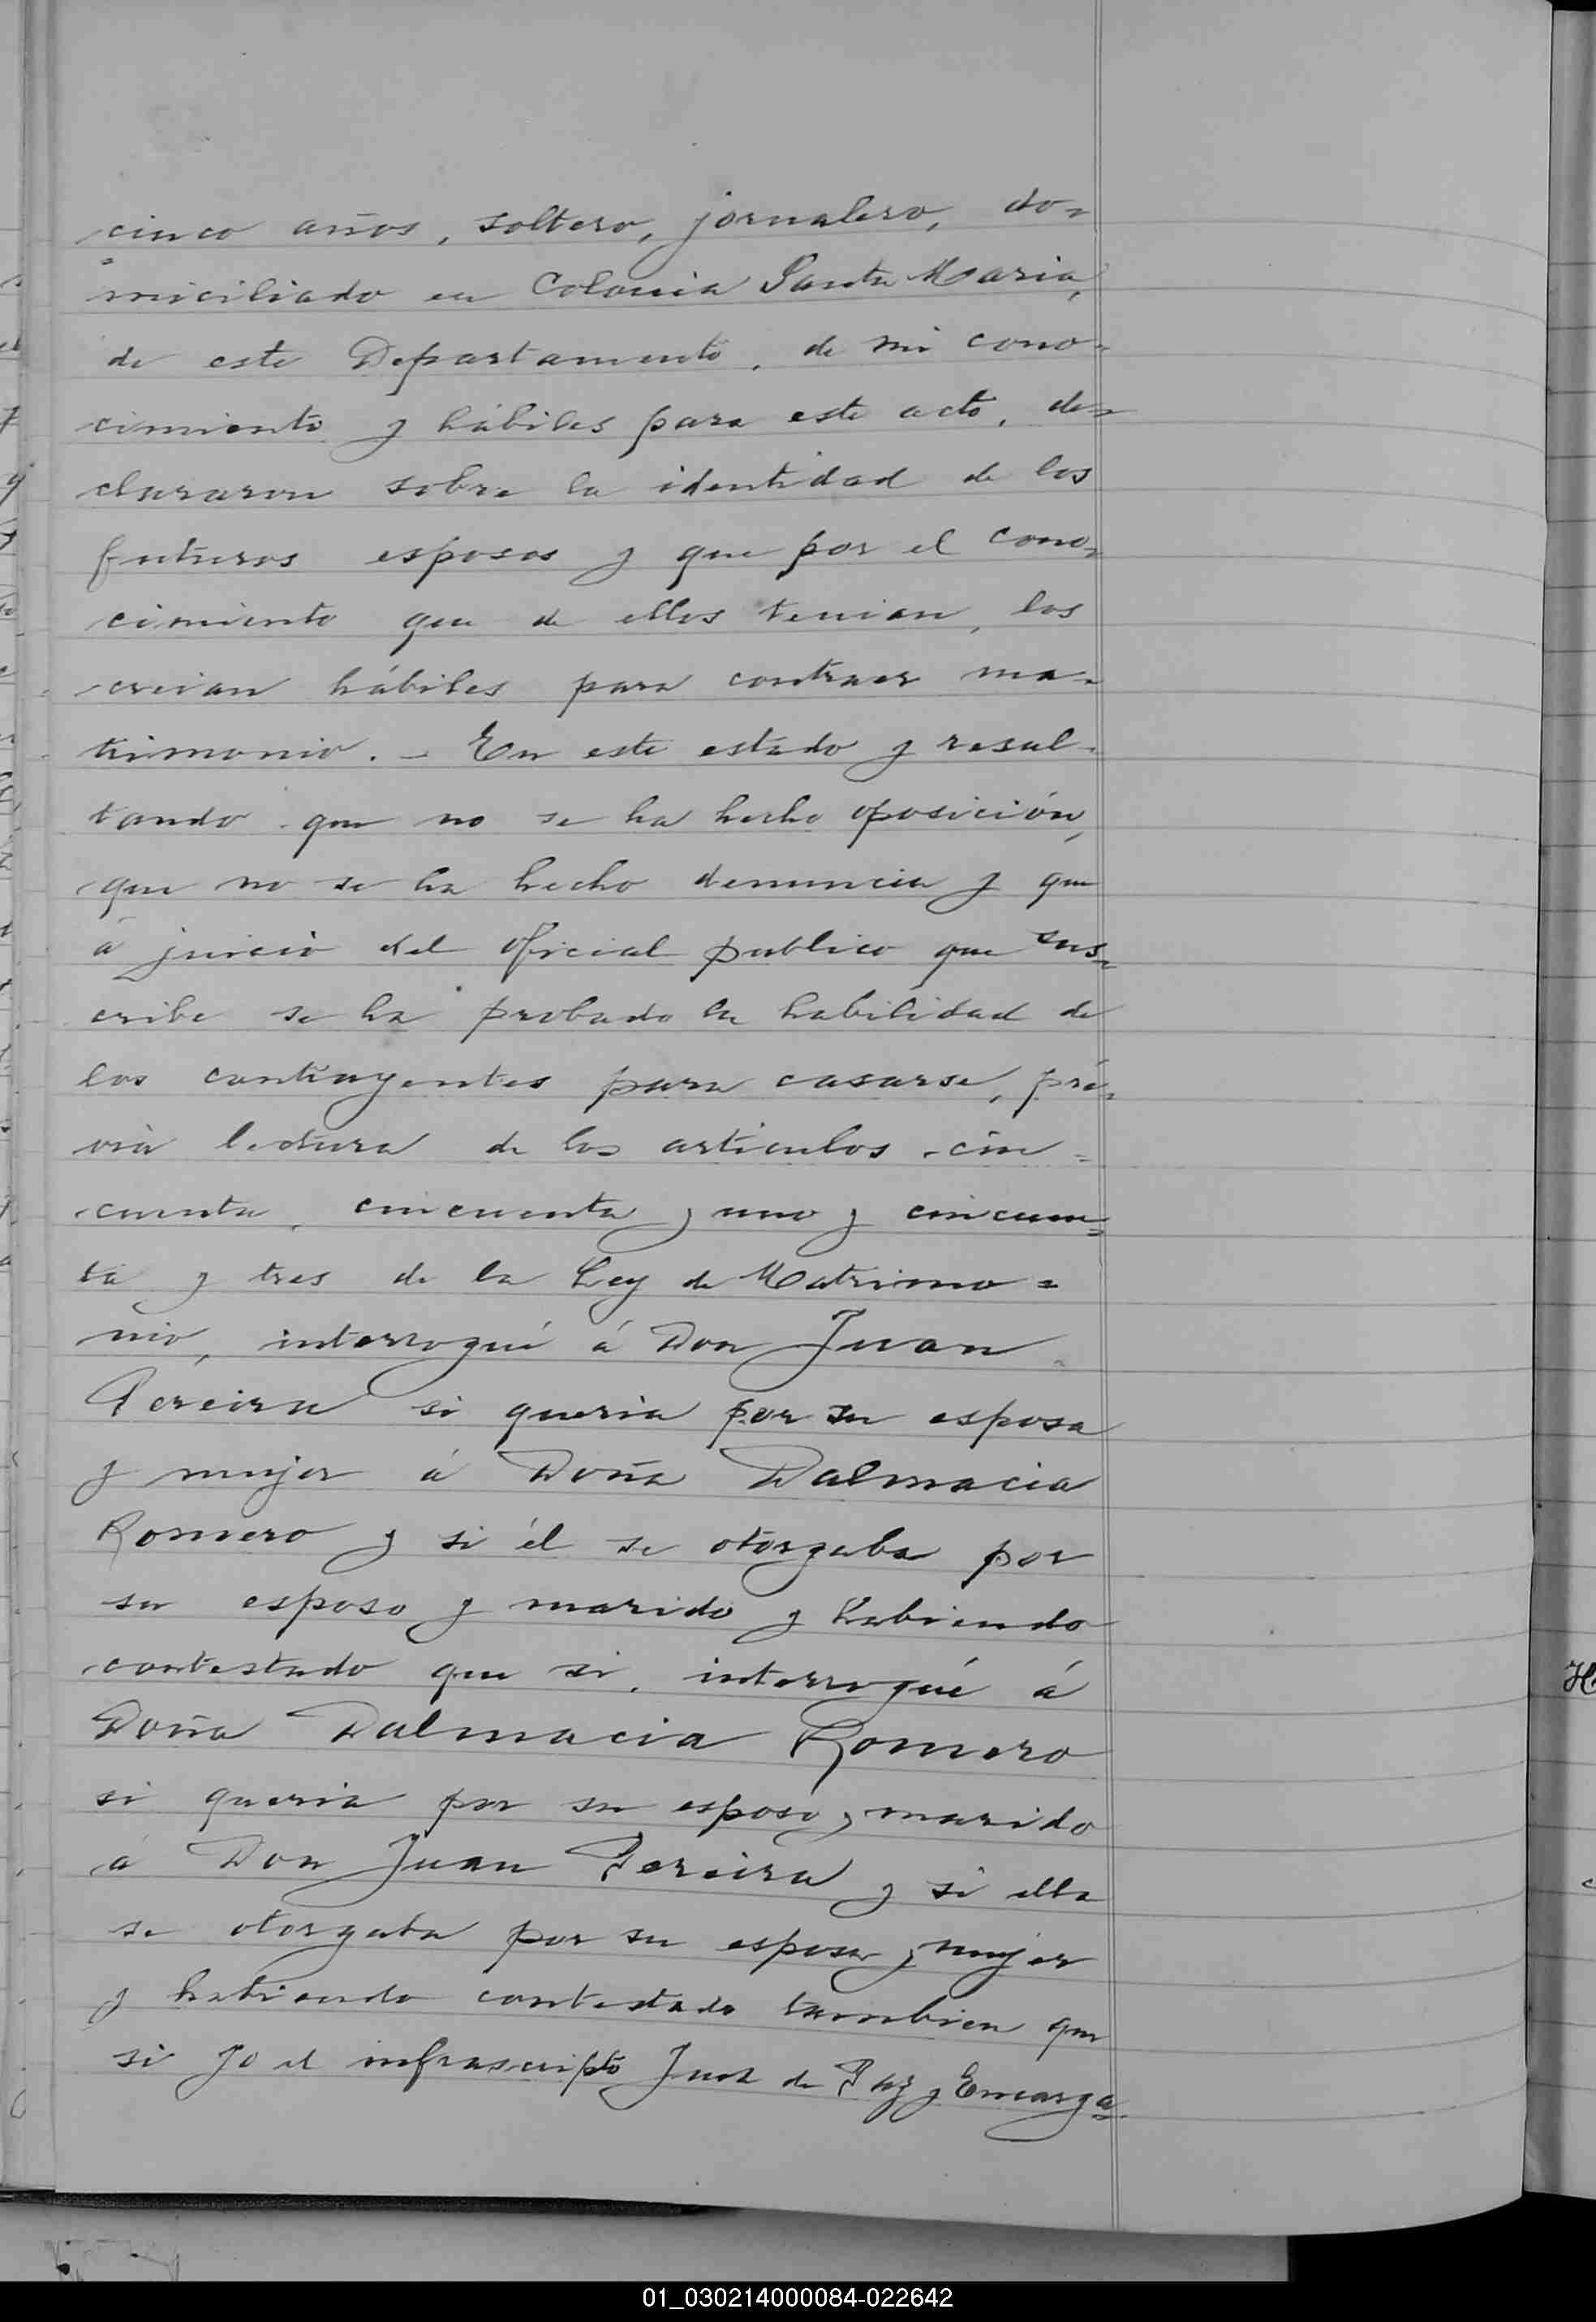 cinco años, soltero, jornalero, do-
miciliado en Colonia Santa Maria,
de este Departamento, de mi cono-
cimiento y hábiles para este acto, de-
clararon sobre la identidad de los
futuros esposos y que por el cono-
cimiento que de ellos tenian, los
creian hábiles para contraer ma-
trimonio. - En este estado y resul-
tando que no se ha hecho oposición,
que no se ha hecho denuncia y que
á juicio del oficial publico que sus-
cribe se ha probado la habilidad de
los contrayentes para casarse, pré-
via lectura de los articulos cin=
cuenta, cincuenta y uno y cincuen=
ta y tres de la Ley de Matrimo=
nio, interrogué á Don Juan
Pereira si queria por su esposa
y mujer á Doña Dalmacia
Romero y si él se otorgaba por
su esposo y marido y habiendo
contestado que si, interrogué á
Doña Dalmacia Romero
si queria por su esposo y marido
á Don Juan Pereira y si ella
se otorgaba por su esposa y mujer
y habiendo contestado tambien que
si yo el infrascripto Juez de Paz y Encarga=
01_030214000084-022642